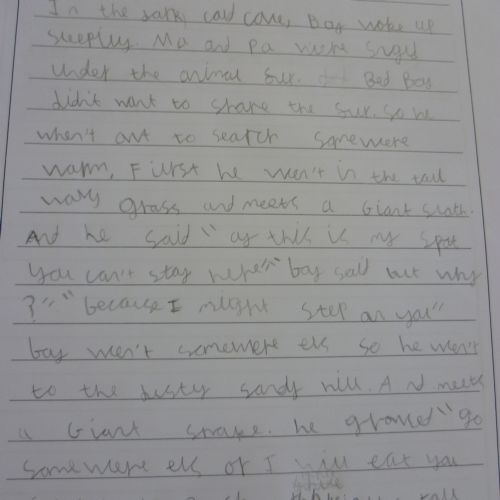 In the dark, cold cave, Boy woke up
sleepley. Ma and Pa were snugd
under the animal fur. Bed Boy
didn't want to share the fur. so he
when't out to search somewere
warm, First he wen't in the tall
wavy grass and meets a Giant sloth.
And he said "oy this is my spot
you can't stay here"" boy said but why
?"" because I might step on you"
boy wen't somewere els so he wen't
to the dusty sandy hill. And meets
a Giant snake. he growled "go
somewere els or I will eat you